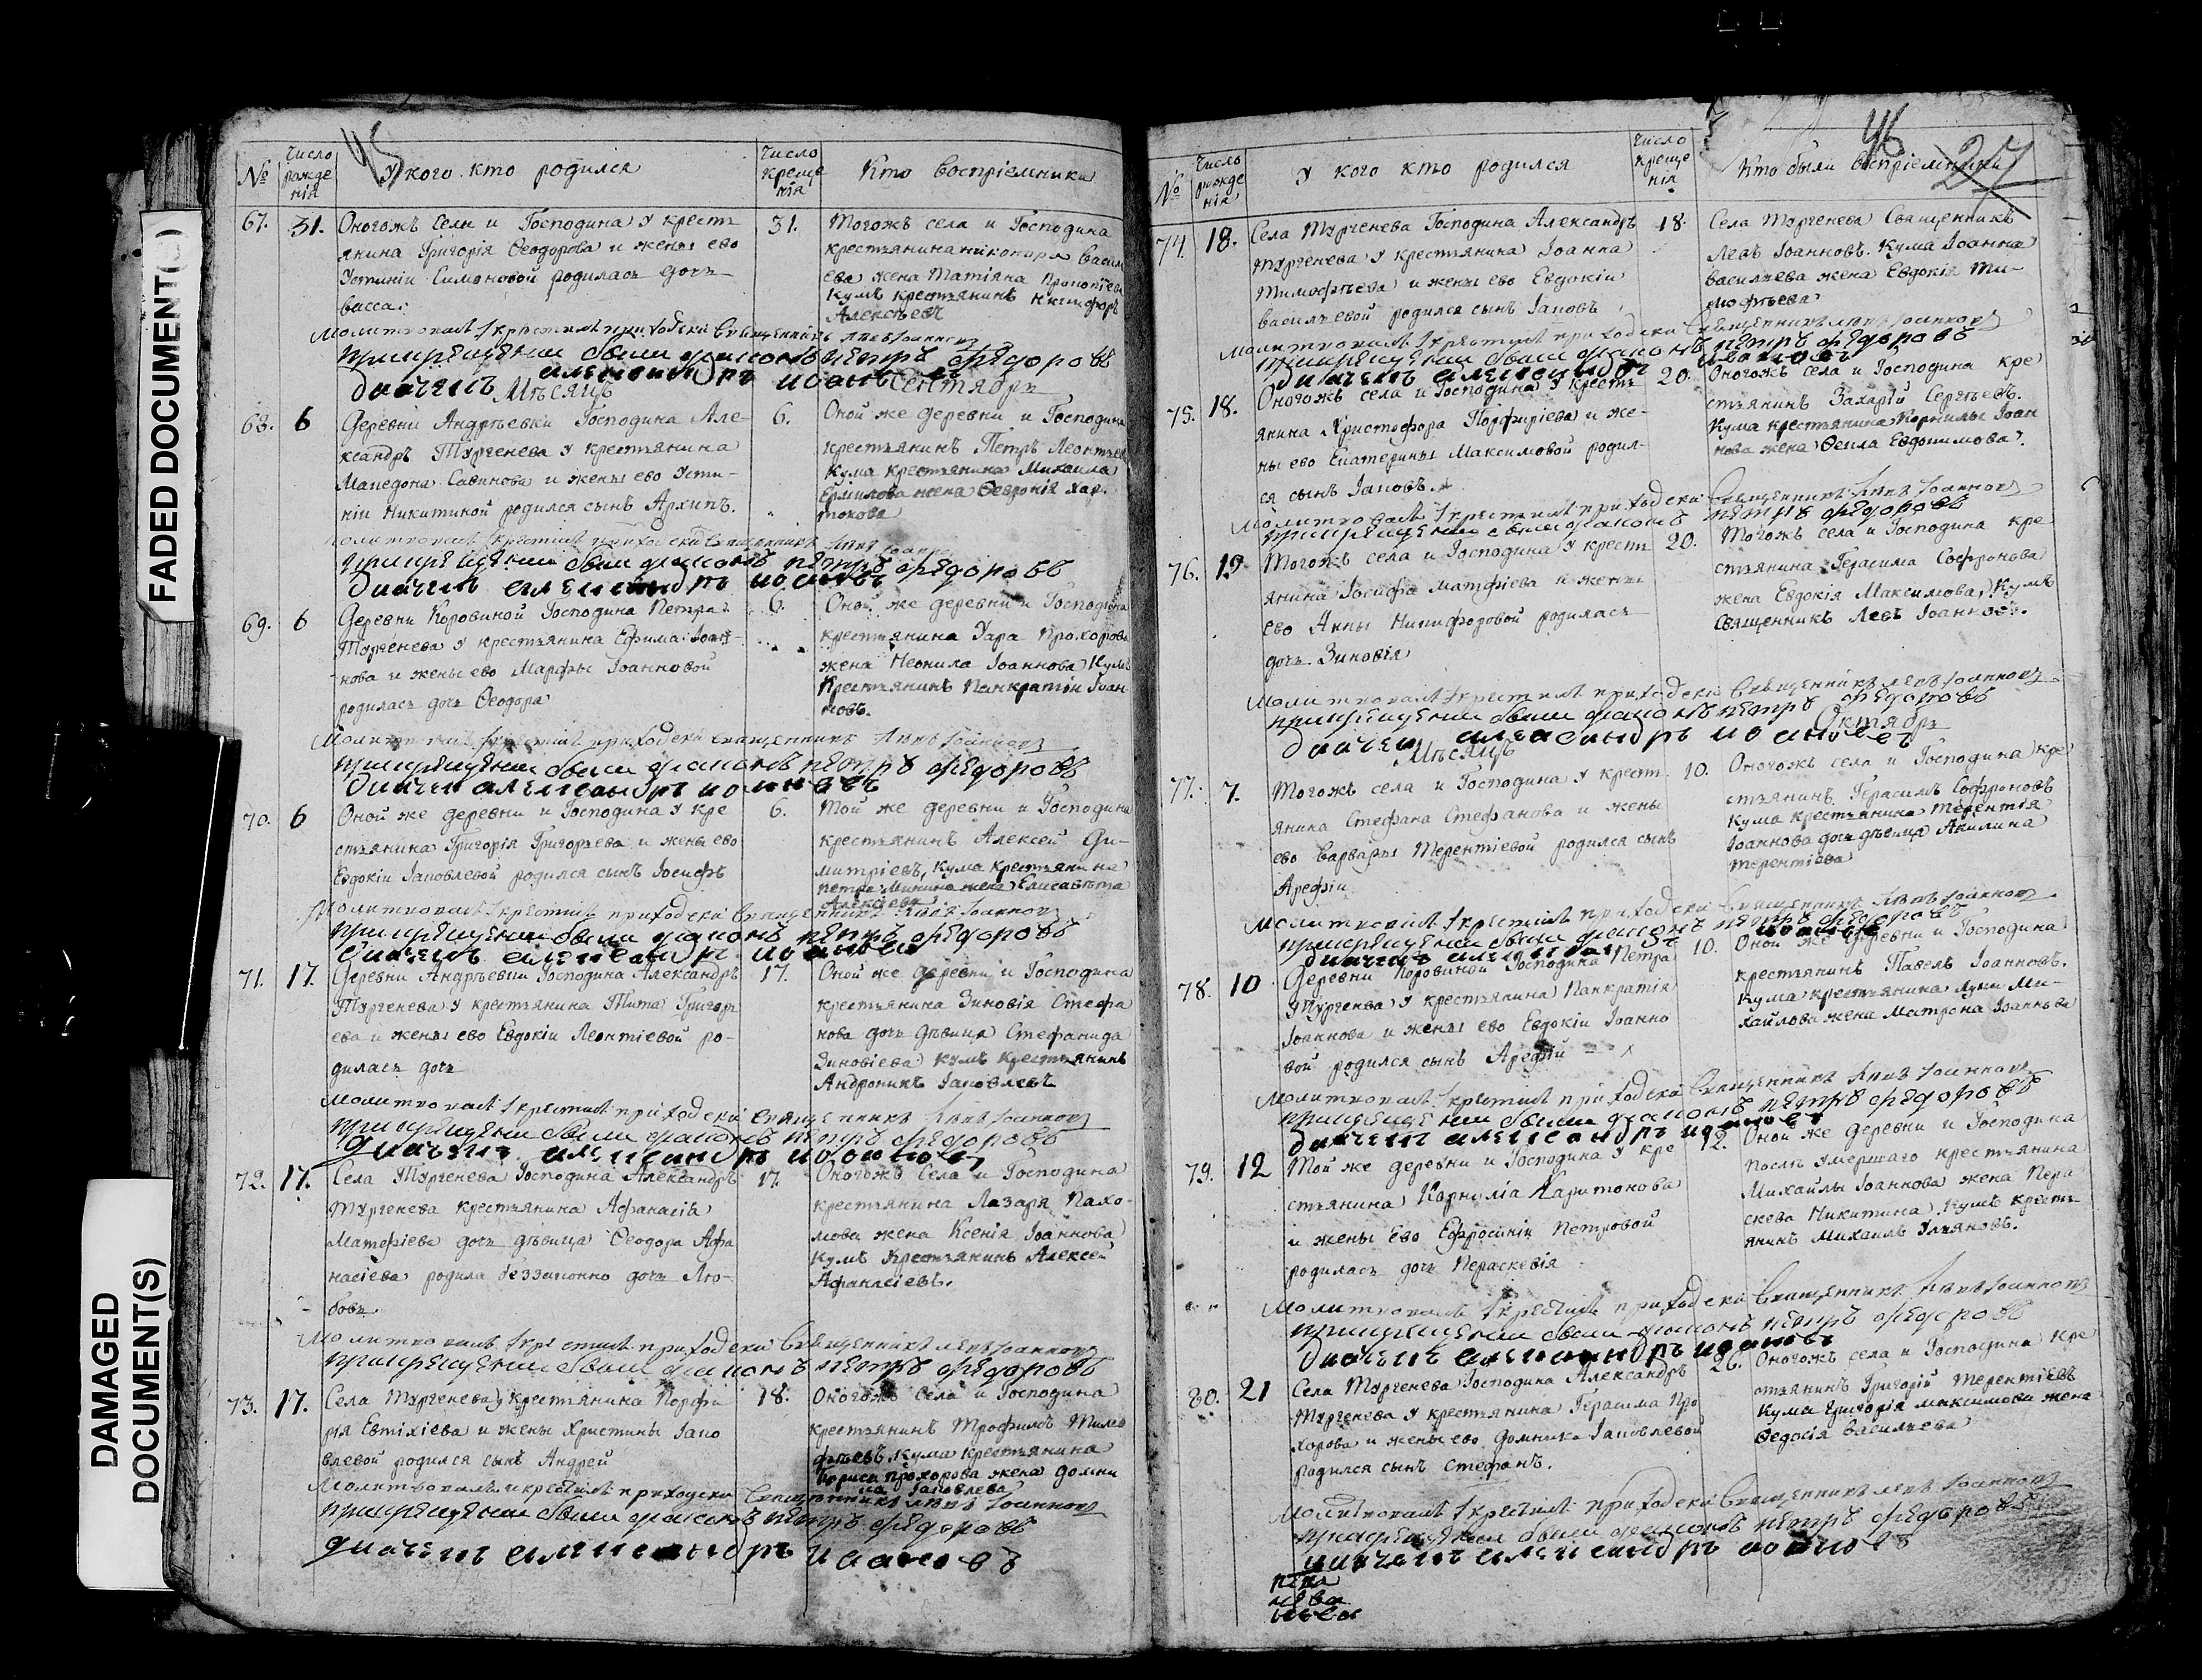 FADED DOCUMENT(S)
DAMAGED
DOCUMENT(S)
45
№
Число рожденія
У кого кто родился
Число крещенія
Кто воспріемники
67. 31.
Оногожъ села и Господина у крестъ
янина Григорія Ѳеодорова и жены ево
Устиніи Симоновой родилась дочь
васса.
31.
Тогожъ села и Господина
крестьянина никонора Васил
ева жена Татіяна Прокопіева
Кумъ крестьянинъ Никифоръ
Алексѣевъ
Молитвовалъ и крестилъ приходскій священникъ левъ Іоанновъ
прикрещеніи были діаконъ петръ федоровъ
дьячекъ александръ ивановъ
Мѣсяцъ Сентябрь
68. 6
Деревни Андрѣевки Господина Але-
ксандръ Тургенева у крестьянина
Македона Савинова и жены ево Усти-
ніи Никитиной родился сынъ Архипъ.
6.
Оной же деревни и Господина
крестьянинъ Петръ Леонтьев
Кума крестьянина Михаила
Ермилова жена Февронія Хар.
токова
молитвовалъ и крестилъ приходскій священникъ левъ Іоанновъ
прикрещеніи были діаконъ петръ федоровъ
дьячекъ александръ ивановъ
69. 6
Деревни Коровиной Господина Петра
Тургенева у крестьянина Ефима Іоан-
нова и жены ево Марфы Іоанновой
родилась дочь Ѳеодора
6.
Оной же деревни и Господина
крестьянина Уара Прохорова
жена Неонила Іоаннова Кумъ
Крестьянинъ Панкратій Іоан
новъ.
Молитвовалъ и крестилъ приходскій священникъ левъ Іоанновъ
прикрещеніи были діаконъ петръ федоровъ
дьячекъ александръ ивановъ
70. 6
Оной же деревни и Господина у кре
стьянина Григорія Григорьева и жены ево
Евдокіи Іаковлевой родился сынъ Іосифъ
6.
Той же деревни и Господина
крестьянинъ Алексей Ди-
митріевъ, Кума крестьянина
петра Минина жена Елисавѣта
Алексіева
Молитвовалъ и крестилъ приходскій священникъ левъ Іоанновъ
прикрещеніи были діаконъ петръ федоровъ
дьячекъ александръ ивановъ
71. 17.
Деревни Андрѣевки Господина Александръ
Тургенева у крестьянина Тита Григорь
ева и жены ево Евдокіи Леонтіевой ро-
дилась дочь
17.
Оной же деревни и Господина
крестьянина Зиновія Стефа
нова дочь дѣвица Стефанида
Зиновіева кумъ крестьянинъ
Андроникъ Іаковлевъ
Молитвовалъ и крестилъ приходскій священникъ левъ Іоанновъ
прикрещеніи были діаконъ петръ федоровъ
дьячекъ александръ ивановъ
72. 17.
Села Тургенева Господина Александръ
Тургенева крестьянина Афанасія
Матфіева дочь дѣвица Ѳеодора Афа
насіева родила беззаконно дочь Лю-
бовь.
17.
Оногожъ Села и Господина
крестьянина Лазаря Пахо-
мова жена Ксенія Іоаннова
Кумъ Крестьянинъ Алексей
Афанасіевъ.
Молитвовалъ и крестилъ приходскій священникъ левъ Іоанновъ
прикрещеніи были діаконъ петръ федоровъ
73. 17.
Села Тургенева у крестьянина Порфи
рія Евтихіева и жены Христины Іако
влевой родился сынъ Андрей
18.
Оногожъ Села и Господина
крестьянинъ Трофимъ Тимо
фѣевъ Кума крестьянина
Бориса прохорова жена домни
ка Іаковлева
Молитвовалъ и крестилъ приходскій священникъ левъ Іоанновъ
прикрещеніи были діаконъ петръ федоровъ
дьячекъ александръ ивановъ
46
27
№
Число рожденія
У кого кто родился
Число крещенія
Кто были воспріемники
74. 18.
Села Тургенева Господина Александръ
Тургенева у крестьянина Іоанна
Тимофѣева и жены ево Евдокіи
васильевой родился сынъ Іаковъ
18.
Села Тургенева Священникъ
Левъ Іоанновъ. Кума Іоанна
васильева жена Евдокія Ти-
мофѣева
Молитвовалъ и крестилъ приходскій священникъ левъ Іоанновъ
прикрещеніи были діаконъ петръ федоровъ
дьячекъ александръ ивановъ
75. 18.
Оногожъ села и Господина у крестъ
янина Христофора Порфиріева и же-
ны ево Екатерины Максимовой родил-
ся сынъ Іаковъ.
20.
Оногожъ села и Господина кре
стьянинъ Захарій Сергѣевъ.
Кума крестьянина Корнилы Іоан
нова жена Ѳекла Евдокимова.
Молитвовалъ и крестилъ приходскій священникъ левъ Іоанновъ
прикрещеніи были діаконъ петръ федоровъ
76. 19.
Тогожъ села и Господина у крестъ
янина Іосифа матфіева и жены
ево Анны Никифоровой родилась
дочь Зиновія
20.
Тогожъ села и Господина кре
стьянина Герасима Софронова
жена Евдокія Максимова, Кумъ
священникъ Левъ Іоанновъ.
Молитвовалъ и крестилъ приходскій священникъ левъ Іоанновъ
прикрещеніи были діаконъ петръ федоровъ
дьячекъ александръ ивановъ
Мѣсяцъ Октябрь
77. 7.
Тогожъ села и Господина у крестъ
янина Стефана Стефанова и жены
ево Варвары Терентіевой родился сынъ
Арефій
10.
Оногожъ села и Господина кре
стьянинъ Герасимъ Софроновъ
Кума крестьянина Терентія
Іоаннова дочь дѣвица Акилина
терентіева
Молитвовалъ и крестилъ приходскій священникъ левъ Іоанновъ
прикрещеніи были діаконъ петръ федоровъ
дьячекъ александръ ивановъ
78. 10
Деревни Коровиной Господина Петра
Тургенева у крестьянина Панкратія
Іоаннова и жены ево Евдокіи Іоанно
вой родился сынъ Арефій
10.
Оной же деревни и Господина
крестьянинъ Павелъ Іоанновъ.
Кума крестьянина Луки Ми-
хайлова жена Матрона Іоаннова
Молитвовалъ и крестилъ приходскій священникъ левъ Іоанновъ
прикрещеніи были діаконъ петръ федоровъ
дьячекъ александръ ивановъ
79. 12
Той же деревни и Господина у кре
стьянина Корнилія Харитонова
и жены ево Ефросиніи Петровой
родилась дочь Параскевія
12.
Оной же деревни и Господина
послѣ умершаго крестьянина
Михайлы Іоаннова жена Пера
скева Никитина. Кумъ крестъ
янинъ Михаилъ Ульяновъ.
Молитвовалъ и крестилъ приходскій священникъ левъ Іоанновъ
прикрещеніи были діаконъ петръ федоровъ
дьячекъ александръ ивановъ
80. 21
Села Тургенева Господина Александръ
Тургенева у крестьянина Герасима Про
хорова и жены ево Домники Іаковлевой
родился сынъ Стефанъ.
26.
Оногожъ села и Господина кре
стьянинъ Григорій Терентіевъ
Кума Григорія максимова жена
Ѳедосія васильева
Молитвовалъ и крестилъ приходскій священникъ левъ Іоанновъ
прикрещеніи были діаконъ петръ федоровъ
дьячекъ александръ ивановъ